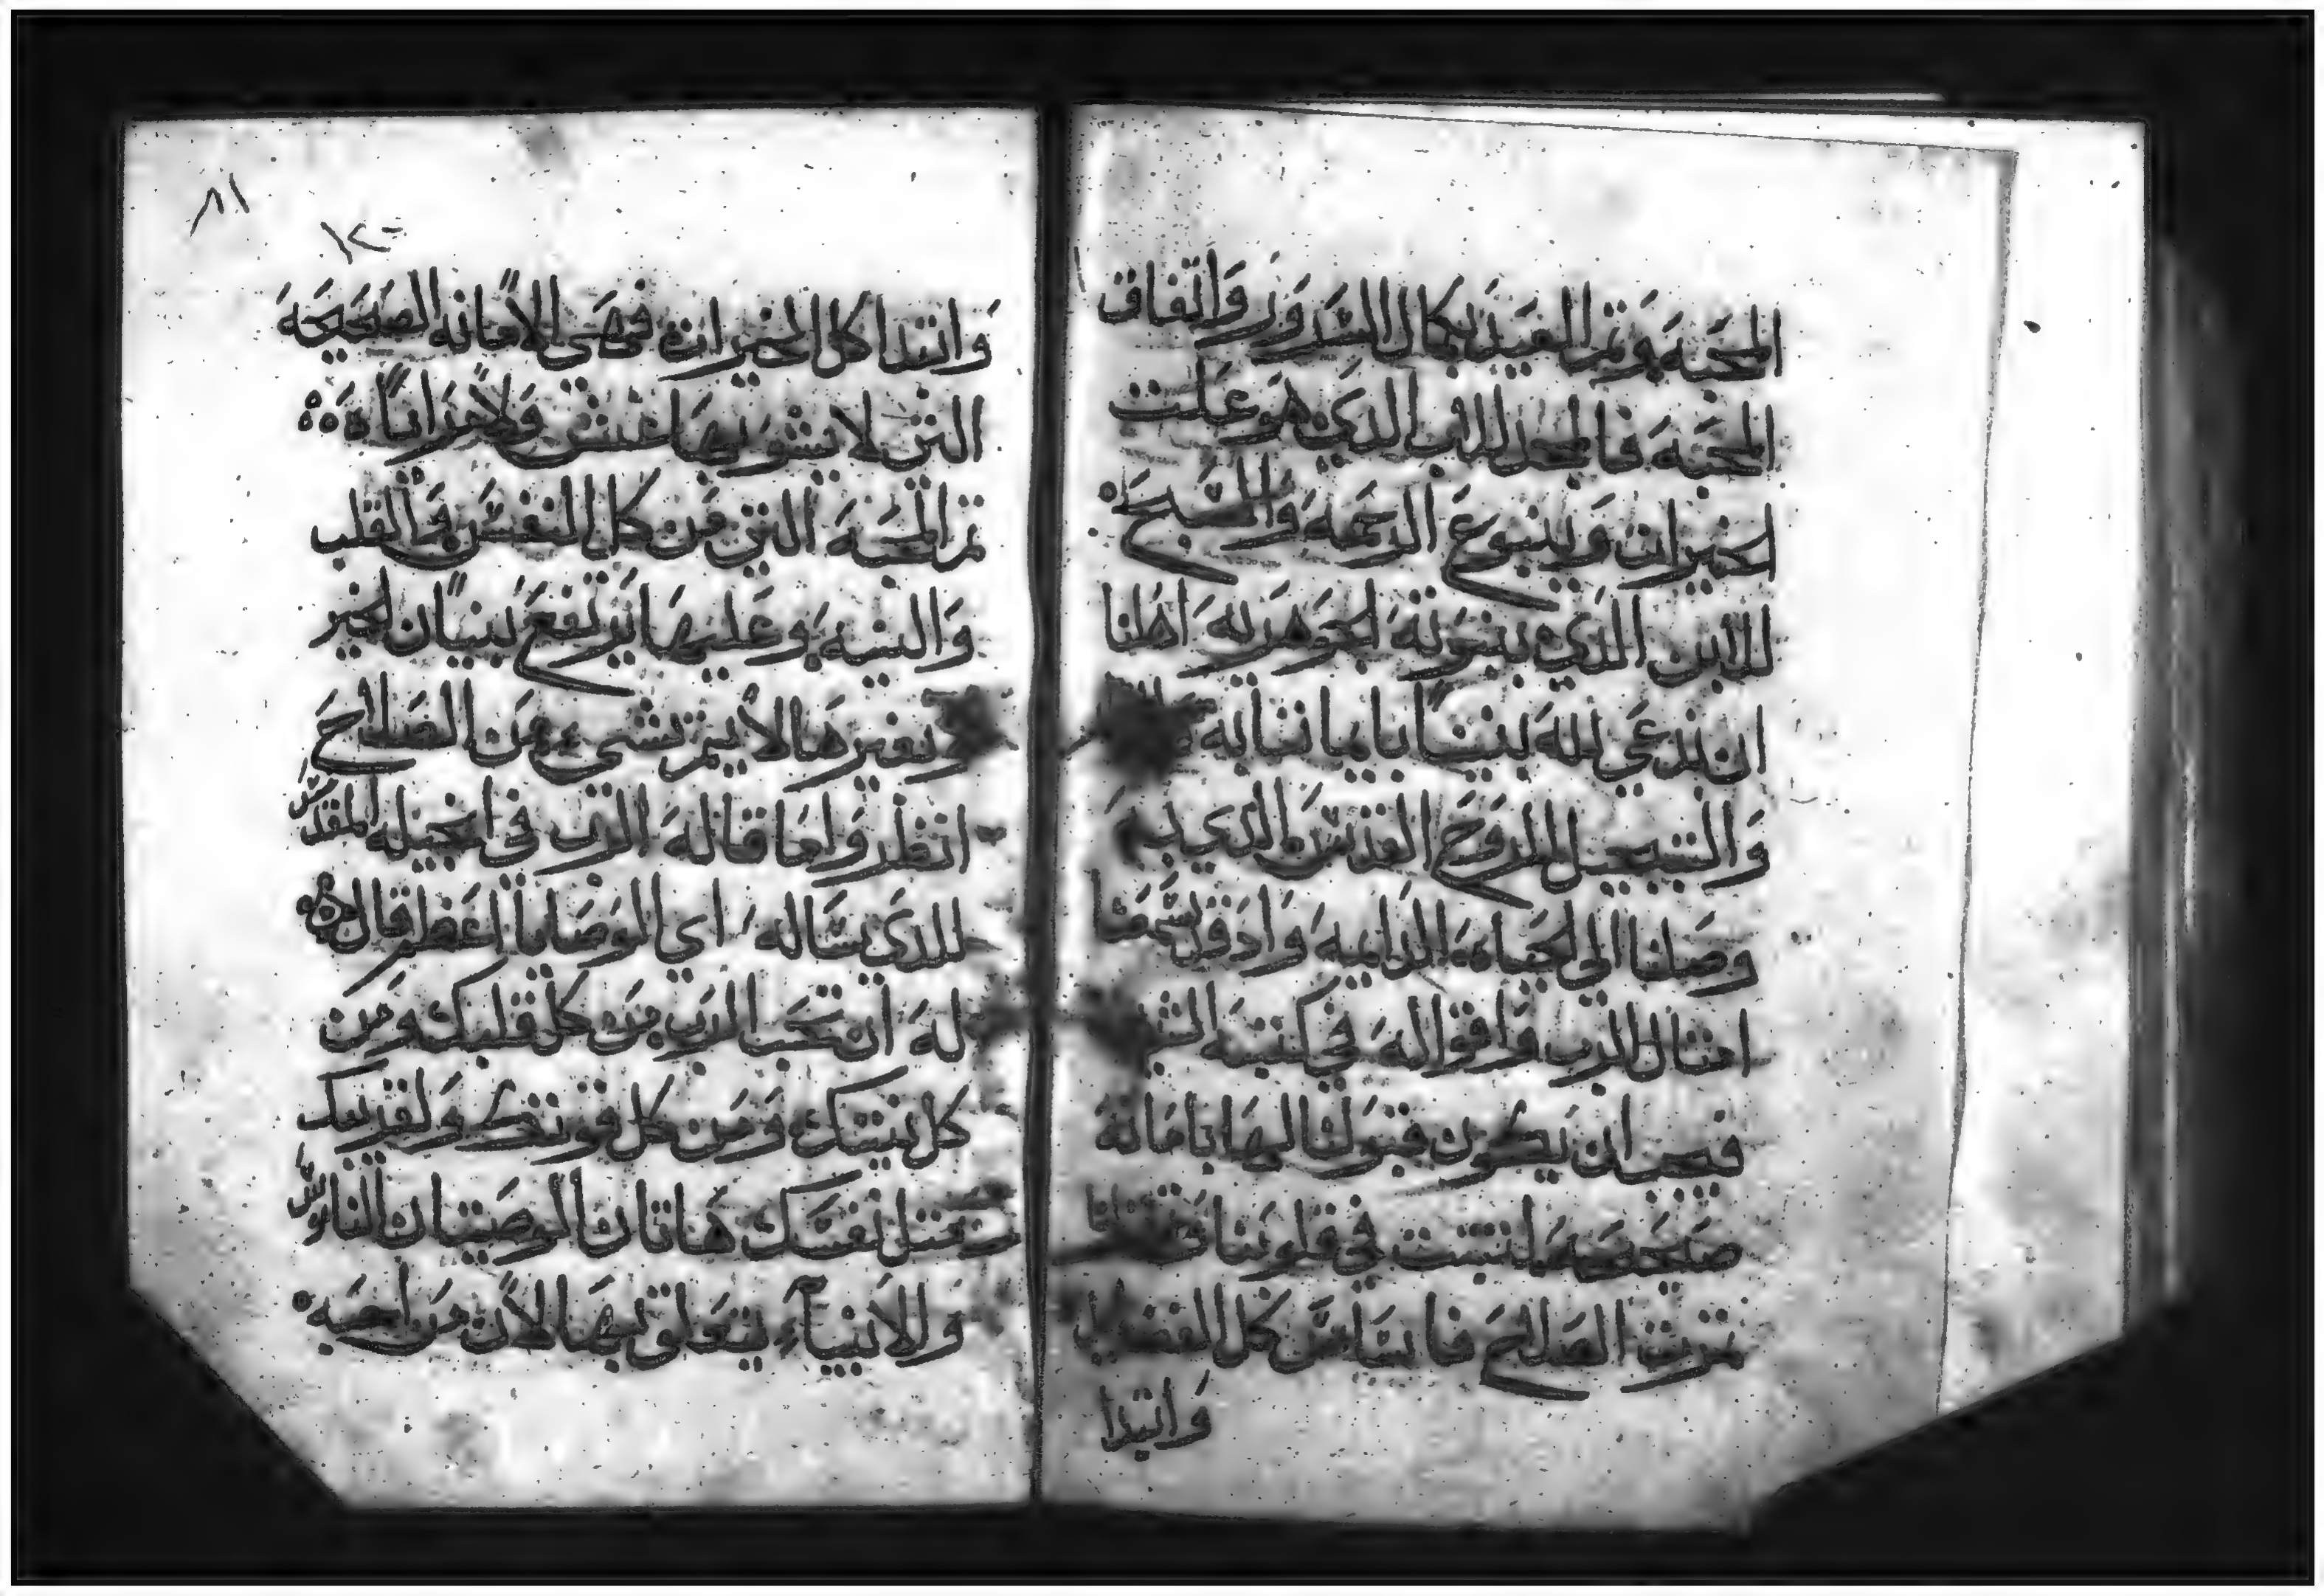 المحبه ويتم العيد بكمال السرور واتفاق
المحبه فالمجد للاب الذي هو علت
الخيرات وينبوع الرحمه والمسبح
للابن الذي ببنوته الجوهريه اهلنا
ان ندعي لله بنينًا بايماننا به
والتسبيح للروح القدس الذي به
وصلنا الي الحياه الدايمه واذ قد سمعنا
امثال الرب واقواله في كنيسته
فيجب ان يكون قبولنا لها بامانه
صحيحه لتثبت في قلوبنا
ثمرت الصالح فاساس كل الفضايل
وابتدا
٨١
وابتدا كل الخيرات فهي الامانه الصحيحه
التي لا يشوبها غش ولا مراياه
ثم المحبه التي من كل النفس والقلب
والنيه وعليها يرتفع بنيان الخير
وبغيرها لا يتم شي من الصلاح
انظروا ما قاله الرب في انجيله المقدس
للذي ساله اي الوصايا اعظم قال
له ان تحب الرب من كل قلبك ومن
كل نيتك ومن كل قوتك ولقريبك
مثل نفسك هاتان الوصيتان الناموس
والانبياء يتعلق بها لان من احبه